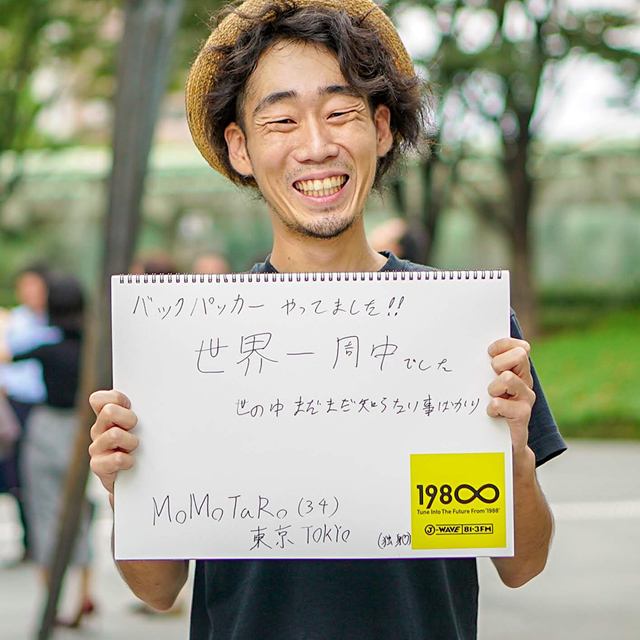 バックパッカー やってました!!
世界一周中でした
世の中 まだまだ知らない事ばかり
MoMoTaRo (34)
東京 TOKYO
(独身)
198∞
Tune Into The Future From '1988'
J-WAVE 81.3FM